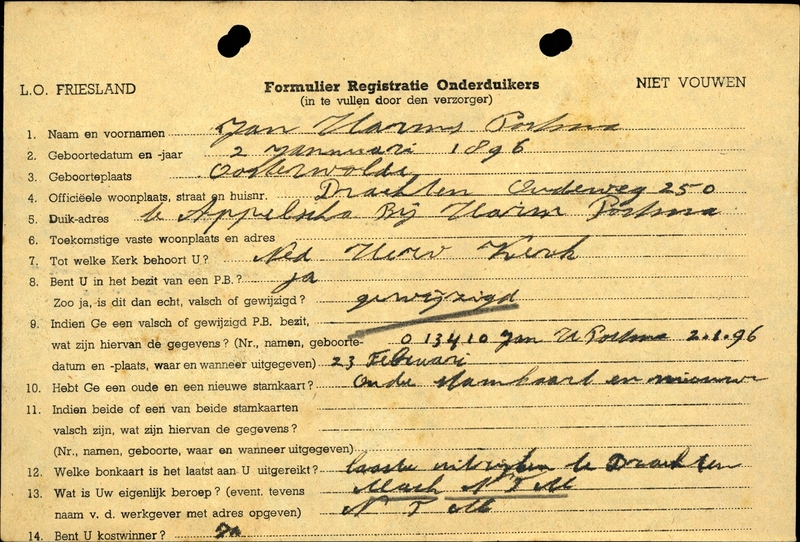 L.O. FRIESLAND Formulier Registratie Onderduikers NIET VOUWEN
(in te vullen door den verzorger)
1. Naam en voornamen Jan Harms Postma
2. Geboortedatum en -jaar 2 Jannuari 1896
3. Geboorteplaats Oosterwolde
4. Officiëele woonplaats, straat en huisnr. Drachten Oudeweg 250
5. Duik-adres te Appelscha Bij Harm Postma
6. Toekomstige vaste woonplaats en adres
7. Tot welke Kerk behoort U? Ned Herv Kerk
8. Bent U in het bezit van een P.B.? ja
Zoo ja, is dit dan echt, valsch of gewijzigd? gewijzigd
9. Indien Ge een valsch of gewijzigd P.B. bezit,
wat zijn hiervan de gegevens? (Nr., namen, geboorte- 013410 Jan H Postma 2.1.96
datum en -plaats, waar en wanneer uitgegeven) 23 Februari
10. Hebt Ge een oude en een nieuwe stamkaart? Oude stamkaart en nieuwe
11. Indien beide of een van beide stamkaarten
valsch zijn, wat zijn hiervan de gegevens?
(Nr., namen, geboorte, waar en wanneer uitgegeven)
12. Welke bonkaart is het laatst aan U uitgereikt? laaste te Drachten
13. Wat is Uw eigenlijk beroep? (event. tevens Mach N T M
naam v. d. werkgever met adres opgeven) N T M
14. Bent U kostwinner? Ja